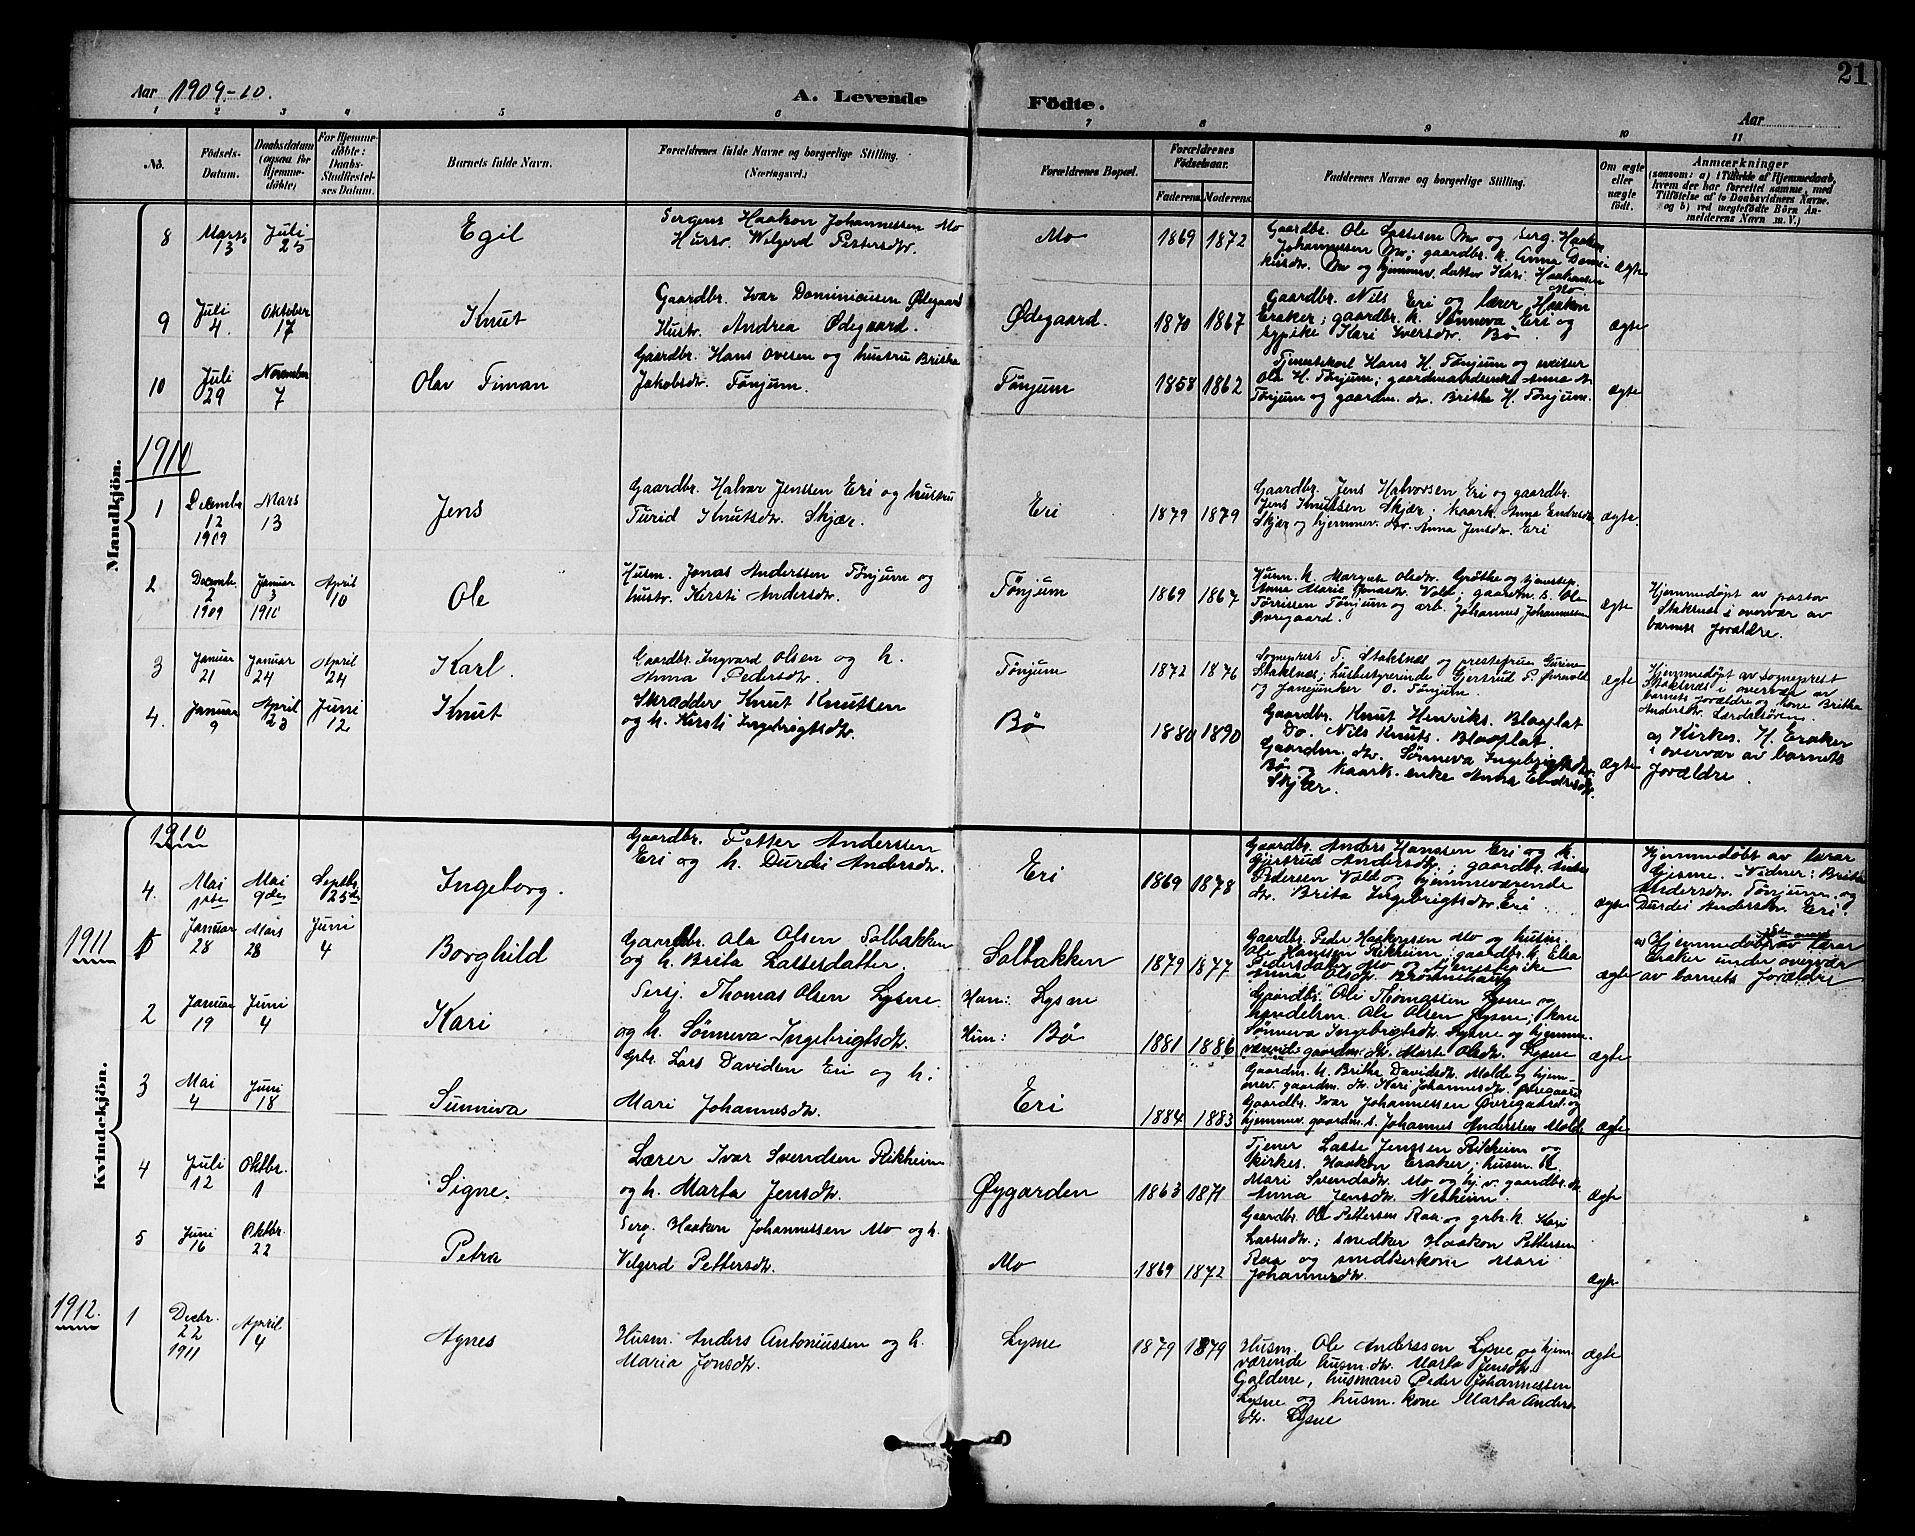 Aar 1909-10.
A. Levende Födte.
Aar
21
1 2 3 4 5 6 7 8 9 10 11
No.
Födsels-Datum.
Daabsdatum (ogsaa for Hjemme-döbte)
For Hjemme-döbte: Daabs-Stadfæstel-ses Datum.
Barnets fulde Navn.
Forældrenes fulde Navne og borgerlige Stilling. (Næringsvei.)
Forældrenes Bopæl.
Forældrenes Födselsaar.
Faderens. Moderens.
Faddernes Navne og borgerlige Stilling.
Om ægte eller uægte födt.
Anmærkninger
(saasom: a) i Tilfælde af Hjemmedaab, hvem der har forrettet samme, med Tilföielse af to Daabsvidners Navne. og b) ved uegtefödte Börn An-melderens Navn m. V.)
Mandkjön.
8 Mars 13 Juli 25 Egil
Sergens Haakon Johannessen Mo
Hustr. Velgerd Pettersdtr.
Mo 1869 1872
Gaardbr. Ole Lassesen Mo og Serg. Haakon
Johannessen Mo; gaardbr. k. Anna Domi-
kusdtr. Mo og hjemmev. datter Kari Haakonsen
Mo
ægte
9 Juli 4. Oktober 17 Knut
Gaardbr. Ivar Dominicusen Ødegaard
Hustr. Andrea Ødegaard.
Ødegaard. 1870 1867
Gaardbr. Nils Eri og lærer Haakon
Eraker; gaardbr. k. Sønneva Eri og
pike Kari Iversdtr. Bø
ægte
10 Juli 29 November 7 Olav Timan
Gaardbr. Hans Ovesen og hustru Britha
Jakobsdtr. Tønjum.
Tønjum 1858 1862
Tjenestekarl Hans H. Tønjum og
Ola H. Tønjum; gaardmandsenke Anna
Tønjum og gaardm. dtr. Britha H. Tønjum.
ægte
1910
1 Decembr 12 1909 Mars 13 Jens
Gaardbr. Halvar Jenssen Eri og hustru
Turid Knutsdtr. Skjær.
Eri 1879 1879
Gaardbr. Jens Halvorsen Eri og gaardbr.
Jens Knutssen Skjær; Kaark. Anna Endresdtr.
Skjær og hjemmev. dtr. Anna Jensdtr. Eri
ægte.
2 Decemb. 2 1909 Januar 3 1910 April 10 Ole
Husm. Jonas Anderssen Tønjum og
hustr. Kersti Andersdtr.
Tønjum 1869 1867
Husm. k. Margrete Olesdtr. Grøthe og tjenestep.
Anne Marie Jonasdtr. Vold; gaardm. s. Ole
Tørrissen Tønjum og arb. Johannes Johannessen
Øvregaard.
ægte
Hjemmedøpt av pastor
Staksnæs i overvær av
barnets forældre.
3 Januar 21 Januar 24 April 24 Karl.
Gaardbr. Ingvard Olsen og h.
Anna Pedersdtr.
Tønjum 1872 1876
Sogneprest T. Staksnæs og prestefrue Gurine
Staksnæs; husbestyrerinde Gjertrud P. Ørevold
og Janejunker O. Tønjum.
ægte
Hjemmedøpt av Sogneprest
Staksnæs i overvær av
barnets forældre og kone Britha
Andersdtr. Lærdalsøren.
4. Januar 9 April 23 Juni 12 Knut
Skrædder Knut Knutsen
og h. Kersti Ingebrigtsdtr.
Bø 1880 1890
Gaardbr. Knut Henriks. Blaaflat
Do. Nils Knuts. Blaaflat.
Gaardm. dtr. Sønneva Ingebrigtsdtr.
Bø og Kaark. enke Anna Endresdtr.
Skjær.
ægte
Kirkes. H. Eraker
i overvær av barnets
forældre.
Kvindekjön.
1910
4. Mai 1ste Mai 9de Septbr. 25de Ingeborg.
Gaardbr. Petter Anderssen
Eri og h. Durdei Andersdtr.
Eri 1869 1878
Gaardbr. Anders Hanssen Eri og k.
Gjertrud Andersdtr.; gaardbr.
Pedersen Vold og hjemmeværende
dtr. Brita Ingebrigtsdtr. Eri.
ægte
Hjemmedøbt av lærar
Gjesme. Vidner: Britha
Andersdtr. Tønjum og
Durdei Andersdtr. Eri.
1911
1 Januar 28 Mars 28 Juni 4 Borghild
Gaardbr. Ola Olsen Solbakken
og h. Brita Lassesdatter.
Solbakken 1879 1877
Gaardbr. Peder Haakonsen Mo og husm.
Ole Hanssen Rikheim; gaardbr. k. Elsa
Pedersdatter Mo og tjenestepike
Anna Olsdtr.
ægte
Hjemmedøbt av lærar
Eraker under overvær
av barnets forældre
2 Januar 19 Juni 4 Kari
Sersj. Thomas Olsen Lysne
og h. Sønneva Ingebrigtsdtr.
Han: Lysne
Hun: Bø
1881 1886
Gaardbr. Ole Thomassen Lysne og
handelsm. Ole Olsen Lysne; kone
Sønneva Ingebrigtsdtr. Lysne og hjemme-
værende gaardm. dtr. Marte Olsdtr. Lysne
ægte
3 Mai 4 Juni 18 Sunniva
Grbr. Lars Davidsen Eri og h.
Mari Johannesdtr.
Eri 1884 1883
Gaardm. k. Britha Davidsdtr. Molde og hjem-
mev. gaardm. dtr. Kari Johannesdtr. Øvregaard
Gaardbr. Ivar Johannessen Øvregaard og
hjemmev. gaardm. s. Johannes Anderssen Molde
ægte
4 Juli 12 Oktbr. 1 Signe.
Lærer Ivar Svendsen Rikheim
og h. Marta Jensdtr.
Øygarden 1863 1871
Tjener Lasse Jenssen Rikheim og
Kirkes. Haakon Eraker; husm. k.
Mari Svendsdtr. Mo og hj. v. gaardbr. dtr.
Anna Jensdtr. Nesheim.
ægte
5 Juni 16 Oktbr. 22 Petra
Serg. Haakon Johannessen Mo og h.
Velgerd Pettersdtr.
Mo 1869 1872
Gaardbr. Ole Pettersen Raa og grbr. k. Kari
Lassesdtr.; snedker Haakon Pettersen
Raa og snedkerkone Mari
Johannesdtr.
ægte
1912.
1 Decbr. 22 1911 April 4 Agnes
Husm. Anders Antoniussen og h.
Maria Jonsdtr.
Lysne 1879 1879
Husm. Ole Anderssen Lysne og hjem-
værende husm. dtr. Marta Jensdtr.
Galderne, husmand Peder Johannessen
Lysne og husm. kone Marta Anders-
dtr. Lysne
ægte